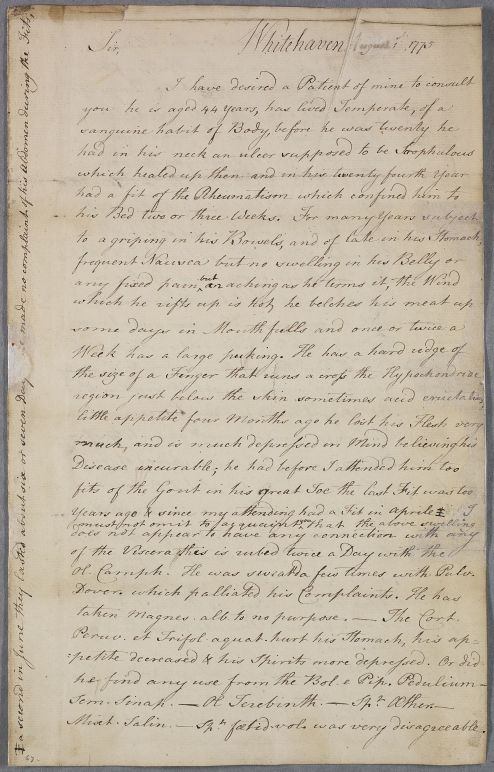 Whitehaven August 1 1775
Sir,
I have desired a Patient of mine to consult
you he is aged 44 years, has lived Temperate, of a
sanguine habit of Body, before he was twenty he
had in his neck an ulcer supposed to be Scrophulous
which healed up then and in his twenty fourth Year
had a fit of the Rheumatism which confined him to
his Bed two or three Weeks. For many Years subject
to a griping in his Bowels, and of late in his Stomach,
frequent Nausea but no swelling in his Belly or
any fixed pain, but an aching as he terms it, the Wind
which he rifts up is hot, he belches his meat up
some days in Mouthfulls and once or twice a
Week has a large puking. He has a hard ridge of
the size of a Finger that runs a cross the Hypochondriac
region just below the skin sometimes acid eructations,
little appetite four Months ago he lost his Flesh very
much, and is much depressed in Mind believing his
Disease incurable; he had before I attended him too
fits of the Gout in his great Toe the last Fit was too
Years ago & since my attending had a Fit in Aprile ‡ I
(must not omit to acquaint you that the above swelling
does not appear to have any connection with any
of the Viscera this is rubed twice a Day with the
Ol. Camph. He was sweated a few times with Pulv.
Dover. which palliated his Complaints. He has
taken Magnes. alb. to no purpose. — The Cort.
Peruv. et Trifol aquat. hurt his Stomach, his ap-
-petite decreased & his Spirits more depressed. Or did
he find any use from the Bol. e Pip. Pedulium —
Sem. Sinap. — Ol Terebinth. — Spt. Æther —
Mixt. Salin. — Spt. fœtid. vol. was very disagreeable.
‡ a second in June they lasted about six or seven Days he made no complaint of his Abdomen during the Fits,